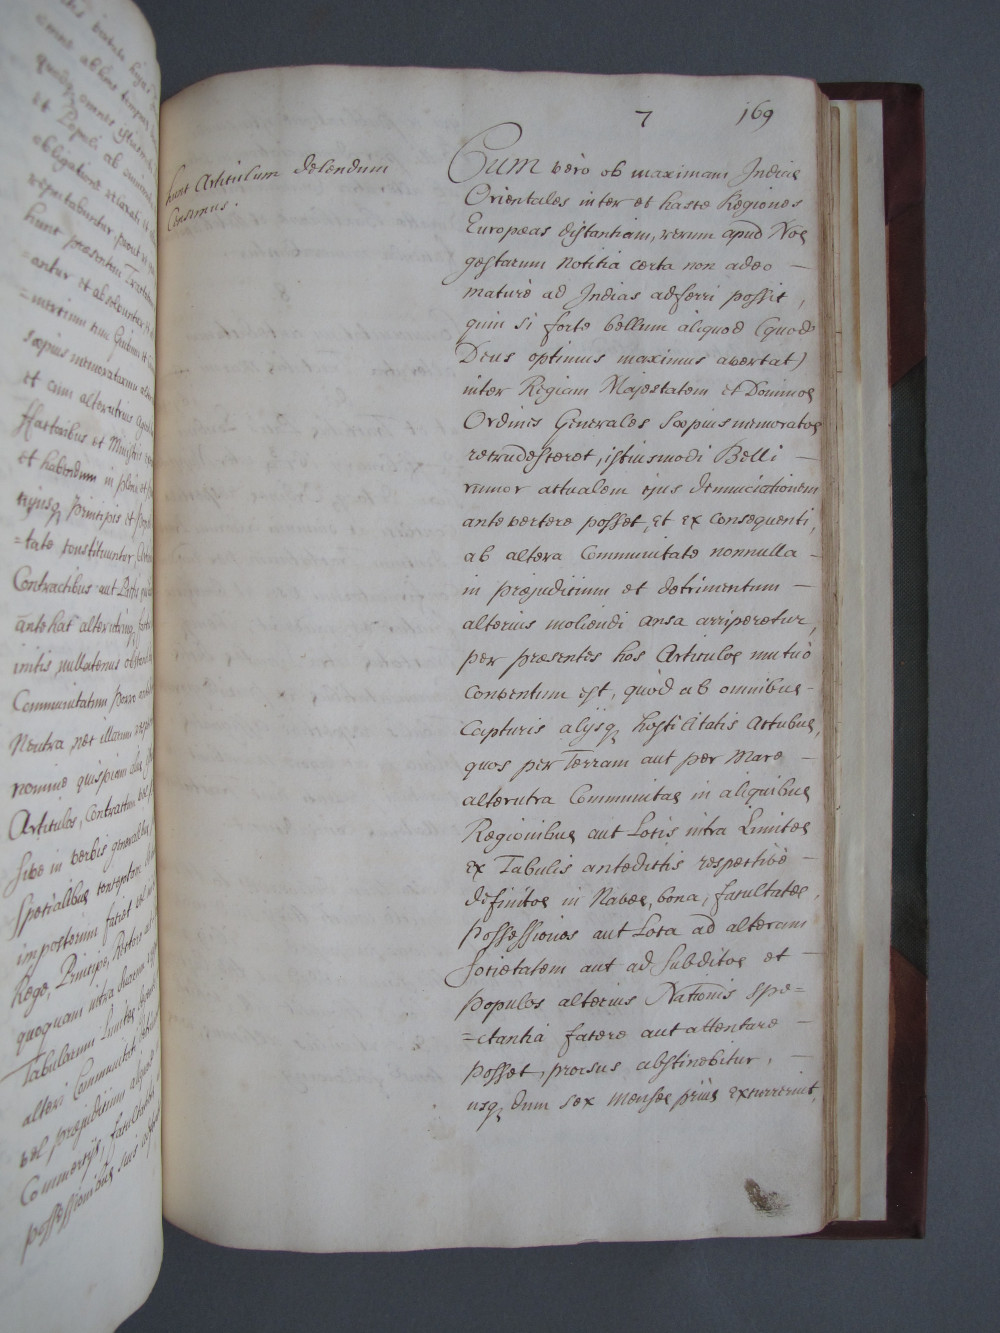 7 169
hunc Articulum delendum
Censemus.
Cum vero ob maximam Indiae
Orientales inter et hasce Regiones
Europæas distantiam, rerum apud Nos
gestarum notitia certa non adeo —
maturè ad Indias adferri possit,
quin si forte bellum aliquod (quod
Deus optimus maximus avertat)
inter Regiam Majestatem et Dominos
Ordines Generales sæpius memoratos
recrudesceret, istiusmodi Belli —
rumor actualem ejus denunciationem
antevertere posset, et ex consequenti,
ab altera Communitate nonnulla —
in præjudicium et detrimentum —
alterius moliendi ansa arriperetur,
per præsentes hos Articulos mutuò
conventum est, quòd ab omnibus -
Capturis alijsq, hostilitatis Actubus,
quos per Terram aut per Mare —
alterutra Communitas in aliquibus
Regionibus aut Locis intra Limites
ex Tabulis antedictis respectivè —
definitos in Naves, bona, facultates,
possessiones aut Loca ad alteram
Societatem aut ad Subditos et —
populos alterius Nationis spe=
=ctantia facere aut attentare —
posset, prorsus abstinebitur, —
usq, dum sex menses priùs excurrerint,
et Populi ab
obligatione
reputabuntur, prout
hunc præsentem Tractatum
=antur et absolvuntur
sæpius memoratarum
et cum alterutrius
ffactoribus et Ministris
et habendum in
cujusq, Principis et
=tate constituuntur,
Contractibus aut Pactis
antehac alterutrinq,
initis nullatenus
Communitatum porro
Neutra, nec illarum
nomine quispiam
Articulos, Contractum
sive in verbis generalibus
specialibus conceptum
impostorum faciet vel
Rege, Principe, Rectore
quoquam intra
Tabularum Limites
alteri Communitati
vel præjudicium
Commercijs, facultatibus
possessionibus suis